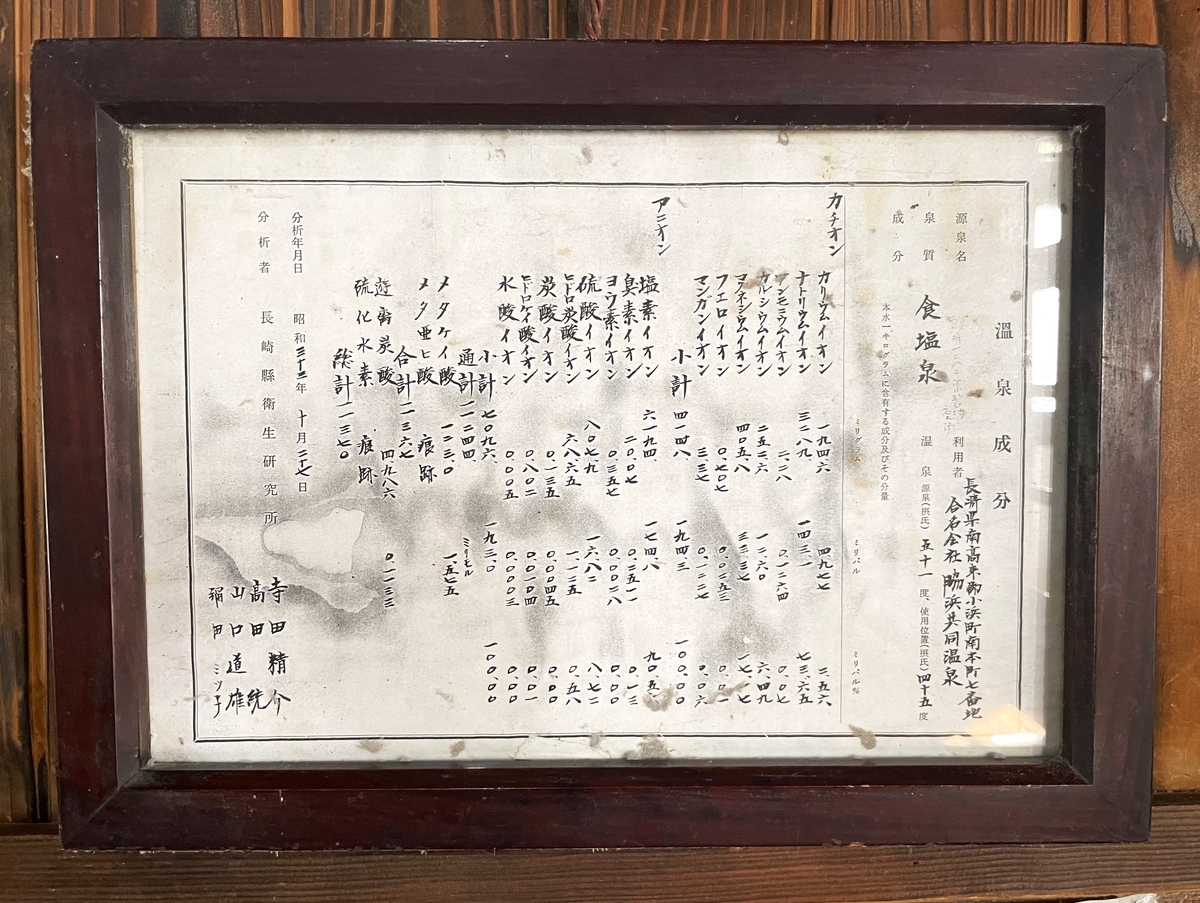 溫泉成分
源泉名
利用者 長崎県南高来郡小浜町南本町七番地
合名会社 脇浜共同温泉
泉質 食塩泉
温泉 源泉(摂氏)五十一度、使用位置(摂氏)四十五度
成分
本水一キログラムに含有する成分及びその分量
ミリグラム ミリバル ミリバル%
カチオン
カリウムイオン 一九四・六 四・九七七 二・五六
ナトリウムイオン 三二八九・ 一四三・一 七三・六五
アンモニウムイオン 二・二八 〇・一二六四 〇・〇七
カルシウムイオン 二五二・六 一二・六〇 六・四九
マグネシウムイオン 四〇五・八 三三・三七 一七・一七
フエロイオン 〇・七〇七 〇・〇二五三 〇・〇一
マンガンイオン 三・三七 〇・一二二七 〇・〇六
小計 四一四八・ 一九四・三 一〇〇・〇〇
アニオン
塩素イオン 六一九四・ 一七四・八 九〇・五一
臭素イオン 二〇・〇七 〇・二五一一 〇・一三
ヨウ素イオン 〇・三五七 〇・〇〇二八 〇・〇〇
硫酸イオン 八〇七・九 一六・八二 八・七二
ヒドロ炭酸イオン 六八・六五 一・一二五 〇・五八
炭酸イオン 〇・一三五 〇・〇〇四五 〇・〇〇
ヒドロケイ酸イオン 〇・八〇二 〇・〇一〇四 〇・〇一
水酸イオン 〇・〇〇五 〇・〇〇〇三 〇・〇〇
小計 七〇九六・ 一九三・〇 一〇〇・〇〇
通計 一一二四四・ ミリモル
メタケイ酸 一二三・〇 一・五七五
メタ亜ヒ酸 痕跡
合計 一一三六七
遊離炭酸 四・九八六 〇・一一三三
硫化水素 痕跡
総計 一一三七〇
分析年月日 昭和三十三年十月二十七日
分析者 長崎縣衛生研究所
寺田精介
高田統
山口道雄
田ミツ子